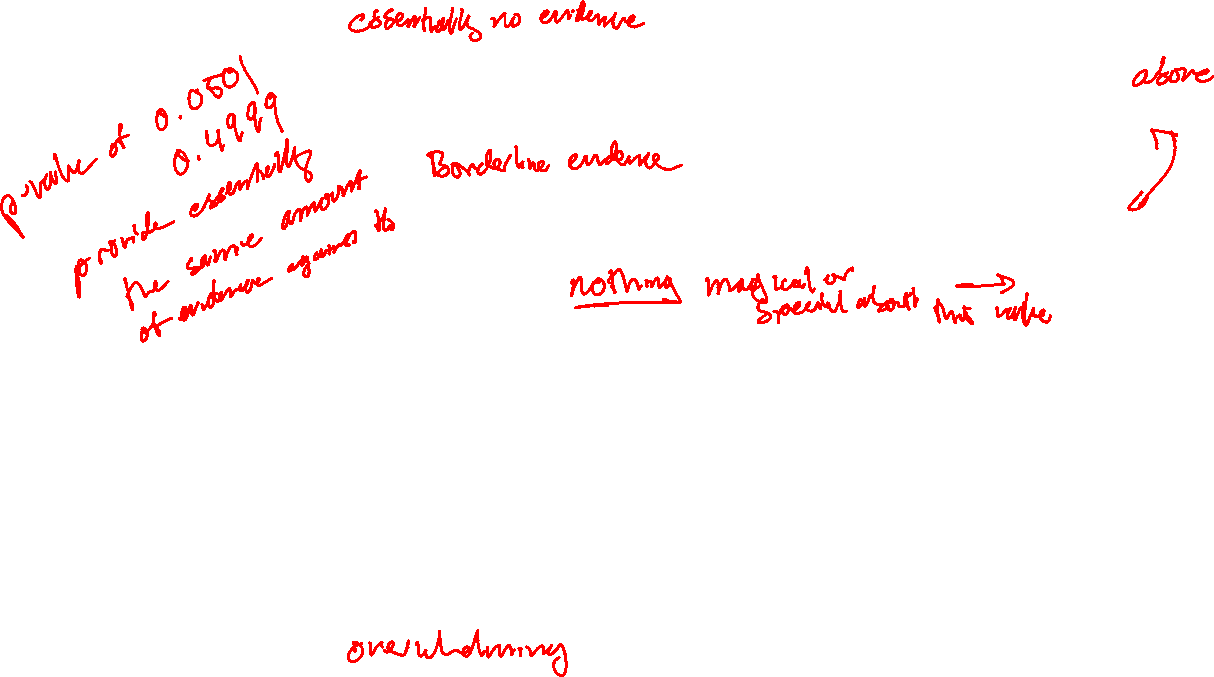 essentially no evidence
above
p-value of 0.0501
0.4999
provide essentially
the same amount
of evidence against Ho
Borderline evidence
nothing magical or
special about this value
overwhelming